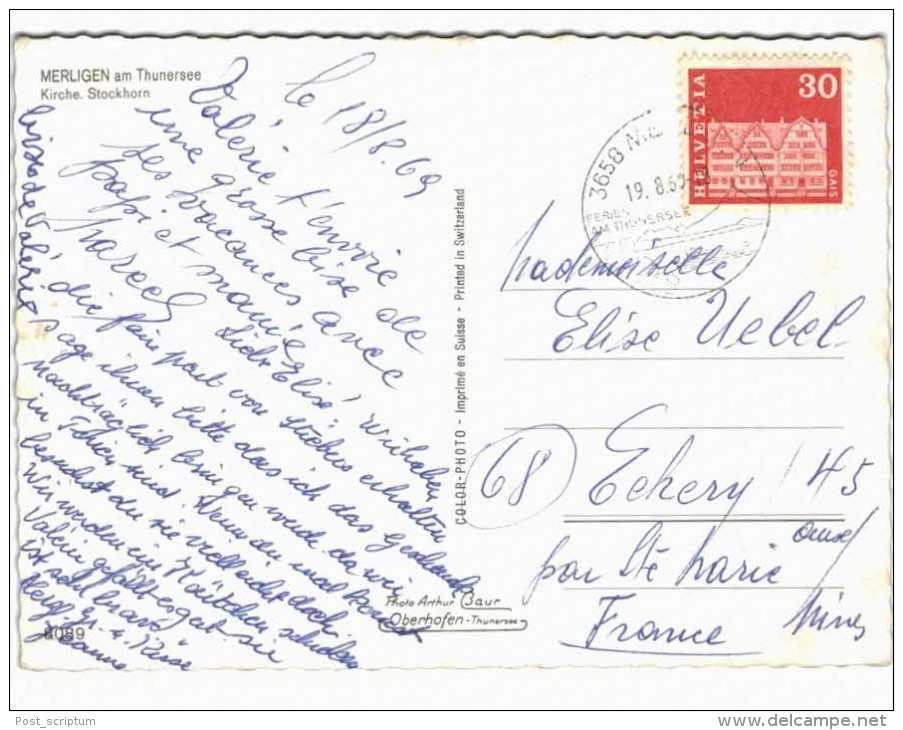 MERLIGEN am Thunersee
Kirche. Stockhorn
le 18/8.69
Valérie t'envoie de
une grosse bise
ses vacances avec
papi et mamie
Marcel
bises de Valérie
Liebe Elise! Wir haben
die faire part von Stückes erhalten
Sage ihnen bitte das ich das Geschenk
nachträglich bringen werde da wir
in Ferien sind. Wenn du nach
besuchst du sie vielleicht doch
Wir werden ein Kärtchen schicken
Valerie gefällt es gut sie
ist sehr brav
Herzl. Gr. u. Küsse
8089
Photo Arthur Baur
Oberhofen-Thunersee
COLOR-PHOTO - Imprimé en Suisse - Printed in Switzerland
HELVETIA
30
GAIS
3658
19.8.69
FERIEN
AM THUNERSEE
Mademoiselle
Elise Uebel
68
Echery 45
par Ste Marie
aux
Mines
France
Post_scriptum
www.delcampe.net